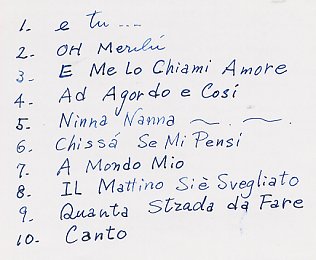 1. e tu ---
2. OH Merilú
3. E Me Lo Chiami Amore
4. Ad Agordo e Così
5. Ninna Nanna ~ . ~ .
6. Chissá Se Mi Pensi
7. A Mondo Mio
8. IL Mattino Siè Svegliato
9. Quanta Strada da Fare
10- Canto